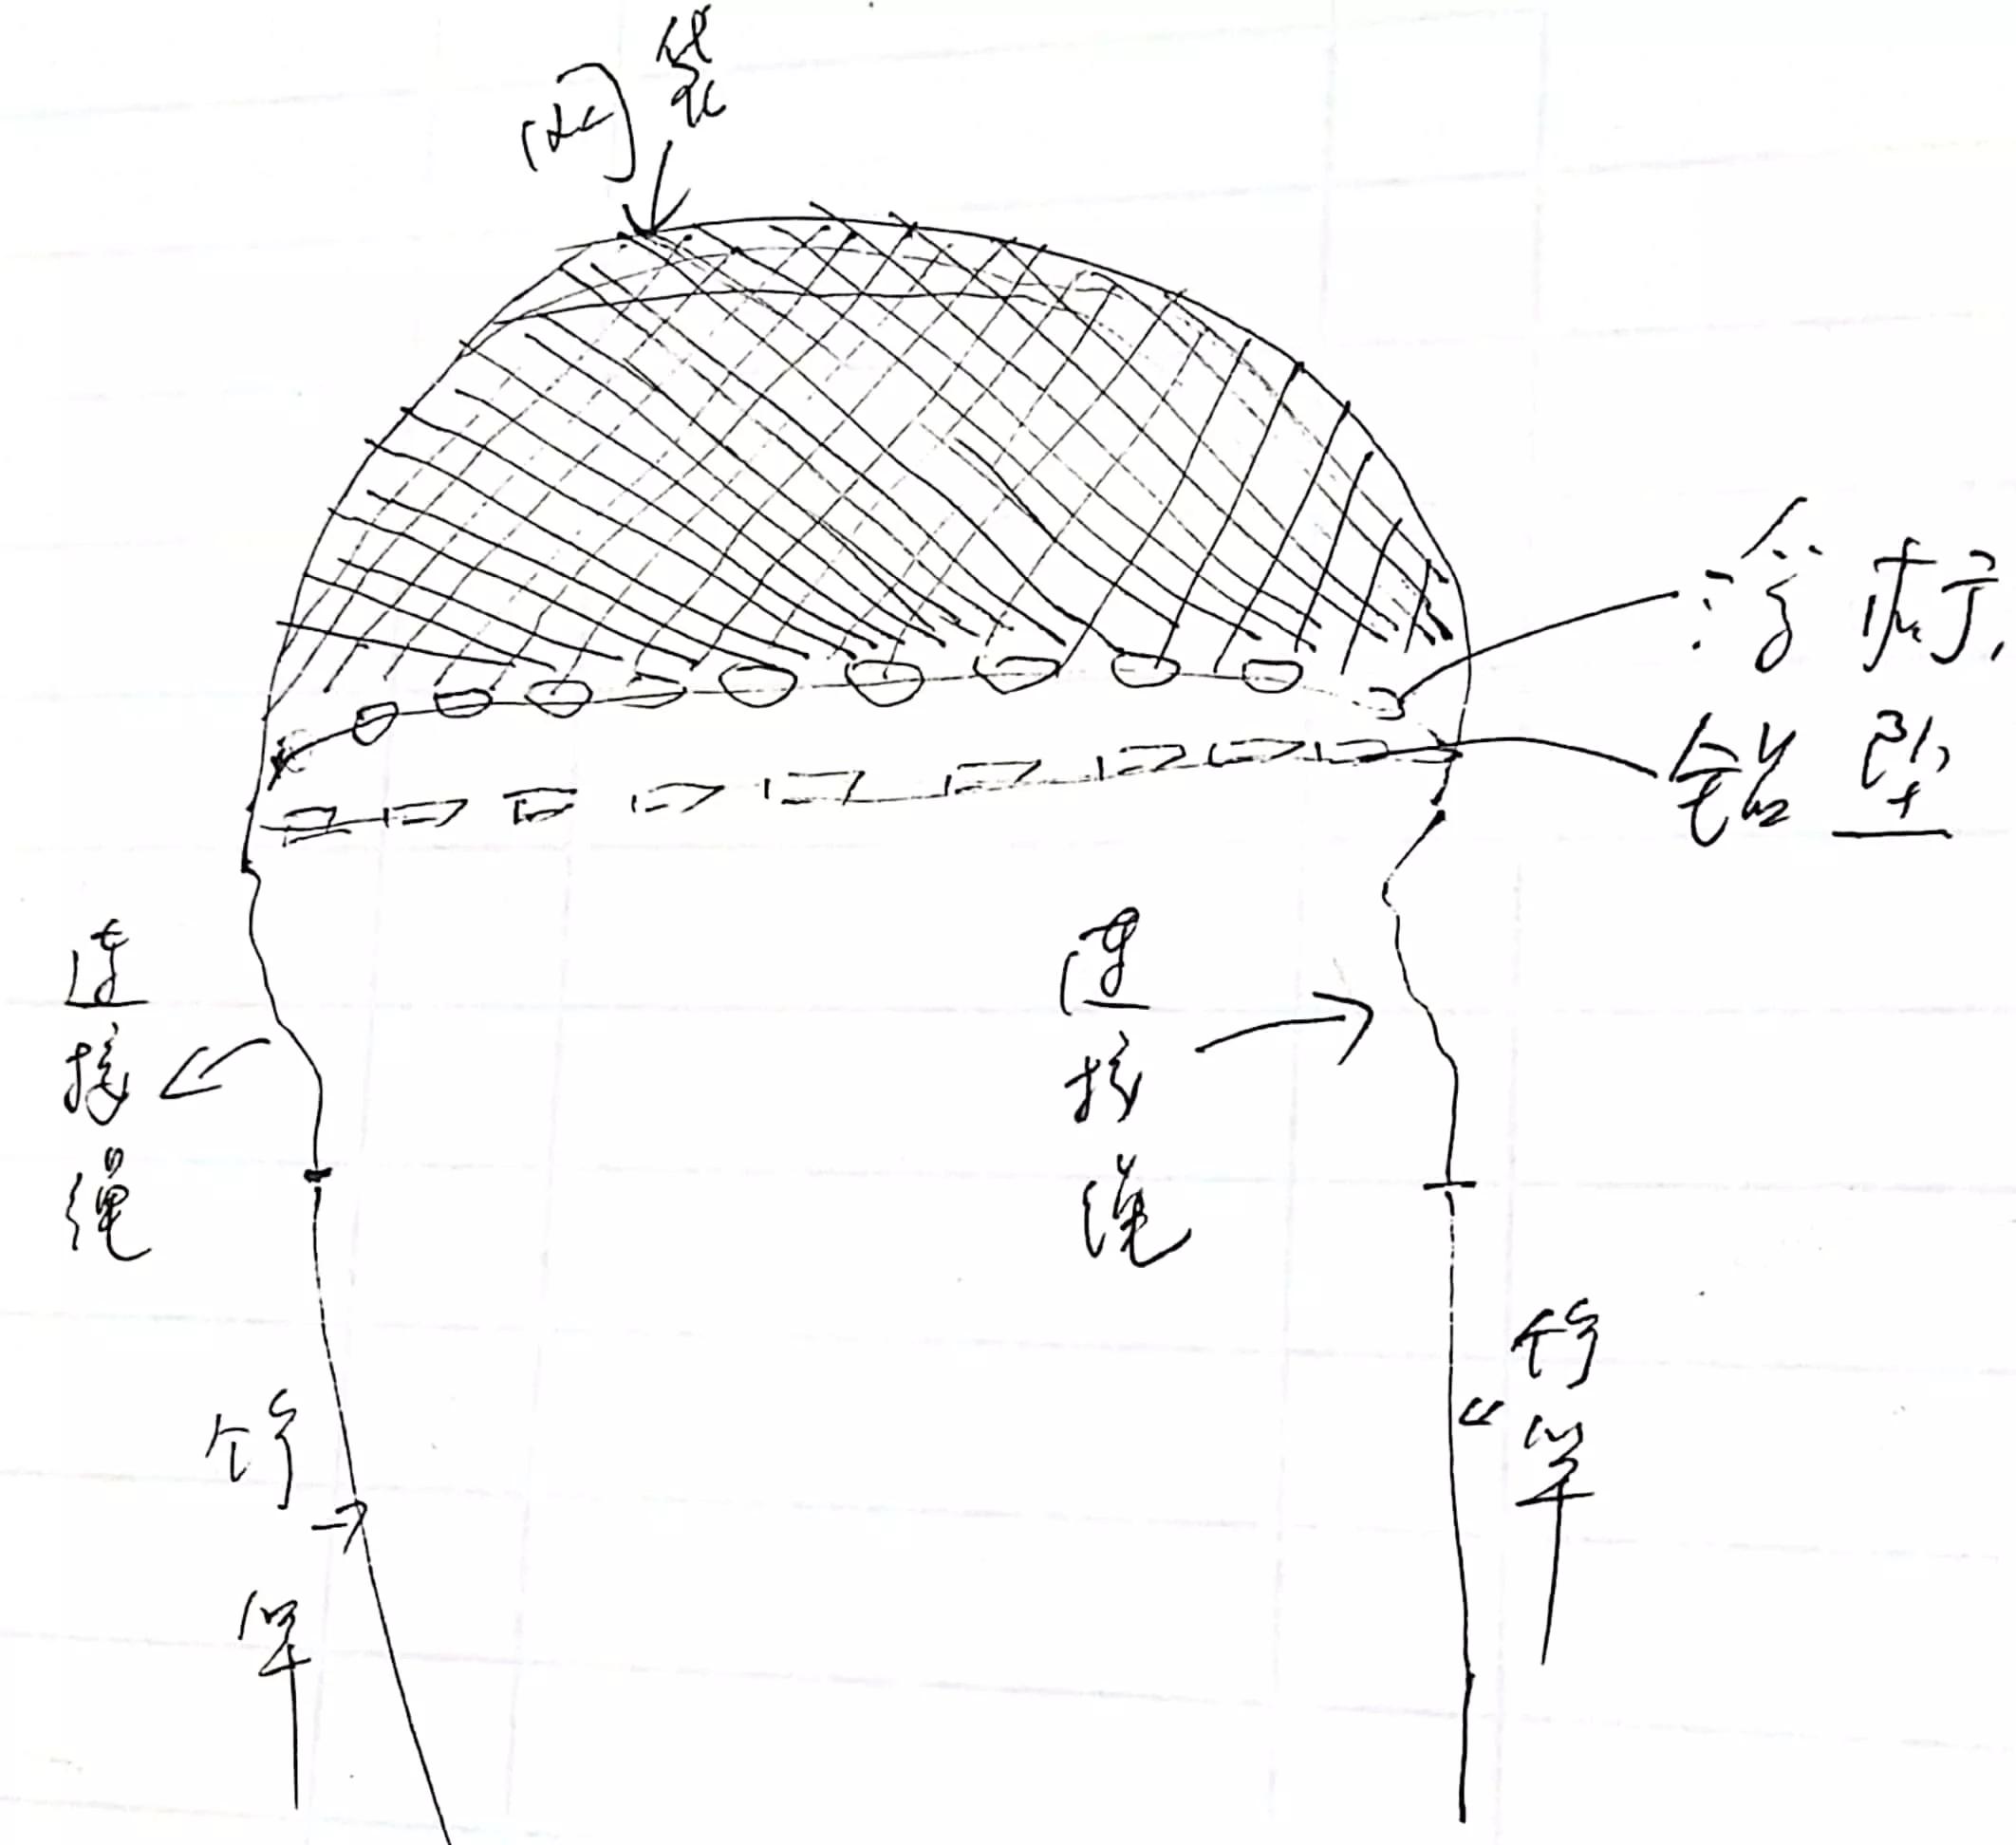 网袋
浮标
铅坠
连接绳
连接绳
竹竿
竹竿